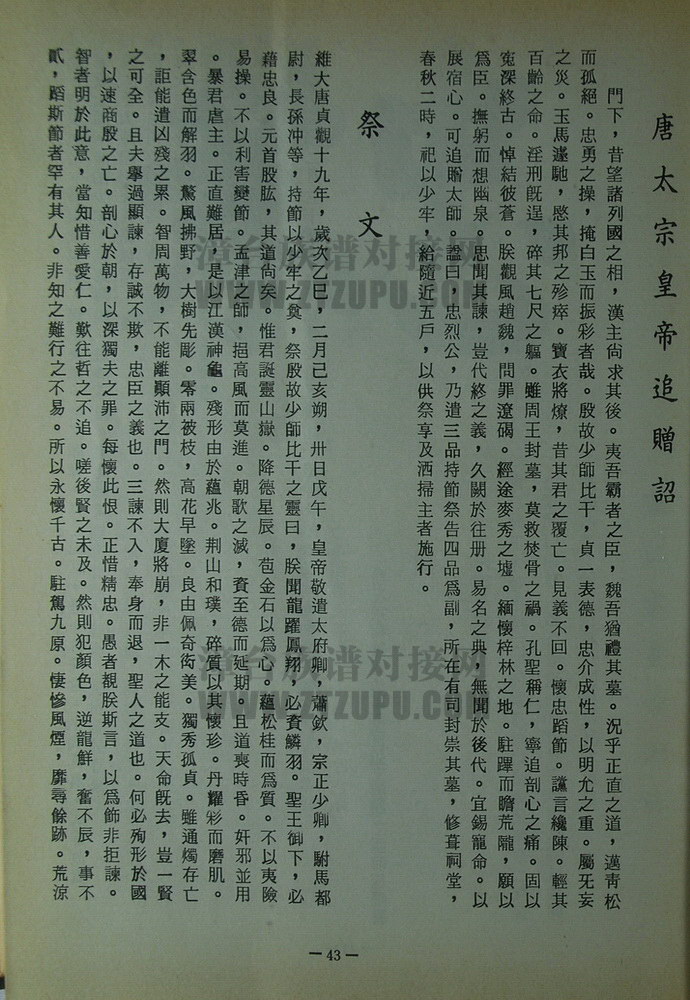 唐太宗皇帝追贈詔
門下,昔望諸列國之相,漢主尙求其後。夷吾霸者之臣,魏吾猶禮其墓。況乎正直之道,邁靑松
而孤絕。忠勇之操,掩白玉而振彩者哉。殷故少師比干,貞一表德,忠介成性,以明允之重。屬旡妄
之災。玉馬遄馳,愍其邦之殄瘁。寶衣將燎,昔其君之覆亡。見義不回。懷忠蹈節。讜言纔陳。輕其
百齡之命。淫刑旣逞,碎其七尺之軀。雖周王封墓,莫救焚骨之禍。孔聖稱仁,寧追剖心之痛。固以
寃深終古。悼結彼蒼。朕觀風趙魏,問罪遼碣。經途麥秀之墟。緬懷梓林之地。駐蹕而瞻荒隴,願以
爲臣。撫躬而想幽泉。思聞其諫,豈代終之義,久闕於往册。易名之典,無聞於後代。宜錫寵命。以
展宿心。可追贈太師。諡曰,忠烈公,乃遣三品持節祭告四品爲副,所在有司封崇其墓,修葺祠堂,
春秋二時,祀以少牢,給隨近五戶,以供祭享及洒掃主者施行。
祭文
維大唐貞觀十九年,歲次乙巳,二月己亥朔,卅日戊午,皇帝敬遣太府卿,蕭欽,宗正少卿,駙馬都
尉,長孫冲等,持節以少牢之奠,祭殷故少師比干之靈曰,朕聞龍躍鳳翔,必資鱗羽。聖王御下,必
藉忠良。元首股肱,其道尙矣。惟君誕靈山嶽。降德星辰。苞金石以爲心。蘊松桂而爲質。不以夷險
易操。不以利害變節。孟津之師,挹高風而莫進。朝歌之滅,資至德而延期。且道喪時昏。奸邪並用
。暴君虐主。正直難居,是以江漢神龜。殘形由於蘊兆。荆山和璞,碎質以其懷珍。丹耀彩而磨肌。
翠含色而解羽。驚風拂野,大樹先彫。零雨被枝,高花早墜。良由佩奇衒美。獨秀孤貞。雖通燭存亡
,詎能遣凶殘之累。智周萬物,不能離顯沛之門。然則大廈將崩,非一木之能支。天命旣去,豈一賢
之可全。且夫舉過顯諫,存誠不欺,忠臣之義也。三諫不入,奉身而退,聖人之道也。何必殉形於國
,以速商殷之亡。剖心於朝,以深獨夫之罪。每懷此恨。正惜精忠。愚者覩朕斯言,以爲飾非拒諫。
智者明於此意,當知惜善愛仁。歎往哲之不追。嗟後賢之未及。然則犯顏色,逆龍鮮,奮不辰,事不
貳,蹈斯節者罕有其人。非知之難行之不易。所以永懷千古。駐駕九原。悽慘風煙,靡尋餘跡。荒涼
—43—